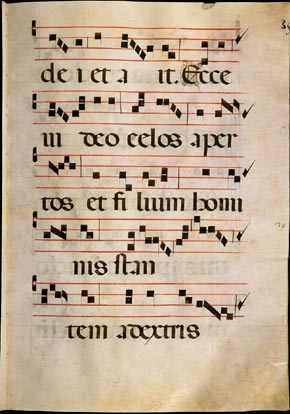 de i et a it. Ecce
ui deo celos aper
tos et fi lium homi
nis stan
tem adextris